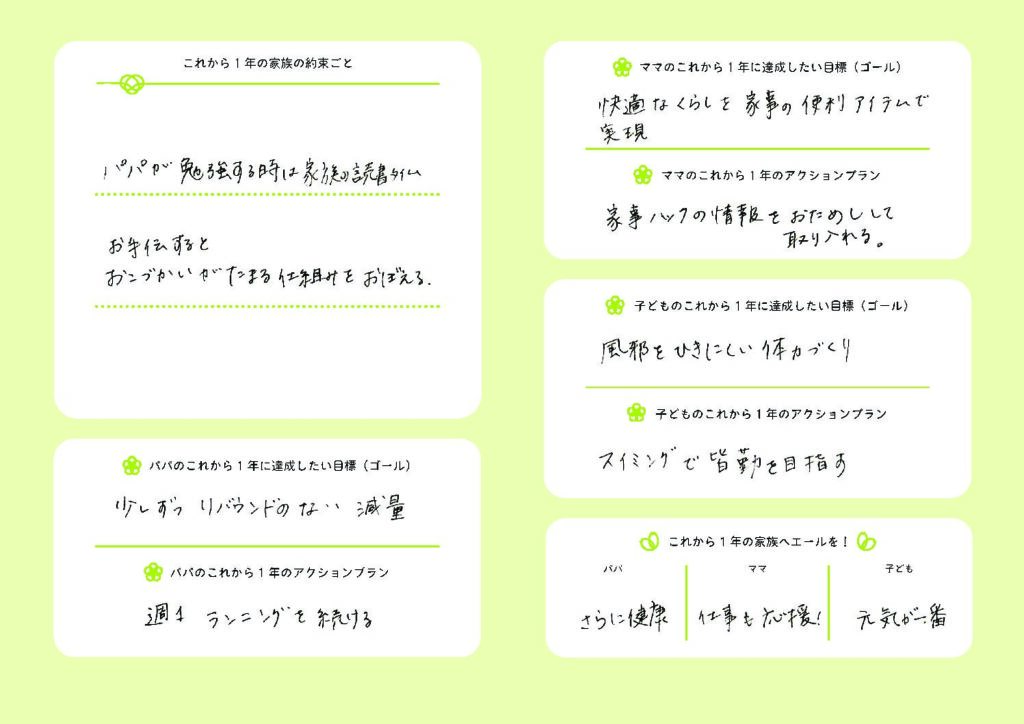 これから1年の家族の約束ごと
パパが勉強する時は家族の読書タイム
お手伝すると
おこづかいがたまる仕組みをおぼえる.
パパのこれから1年に達成したい目標（ゴール）
少しずつ リバウンドのない 減量
パパのこれから1年のアクションプラン
週1 ランニングを続ける
ママのこれから1年に達成したい目標（ゴール）
快適なくらしを家事の便利アイテムで
実現
ママのこれから1年のアクションプラン
家事ハックの情報をおためしして
取り入れる。
子どものこれから1年に達成したい目標（ゴール）
風邪をひきにくい体力づくり
子どものこれから1年のアクションプラン
スイミングで皆勤を目指す
これから1年の家族へエールを！
パパ ママ 子ども
さらに健康 仕事も応援！ 元気が一番